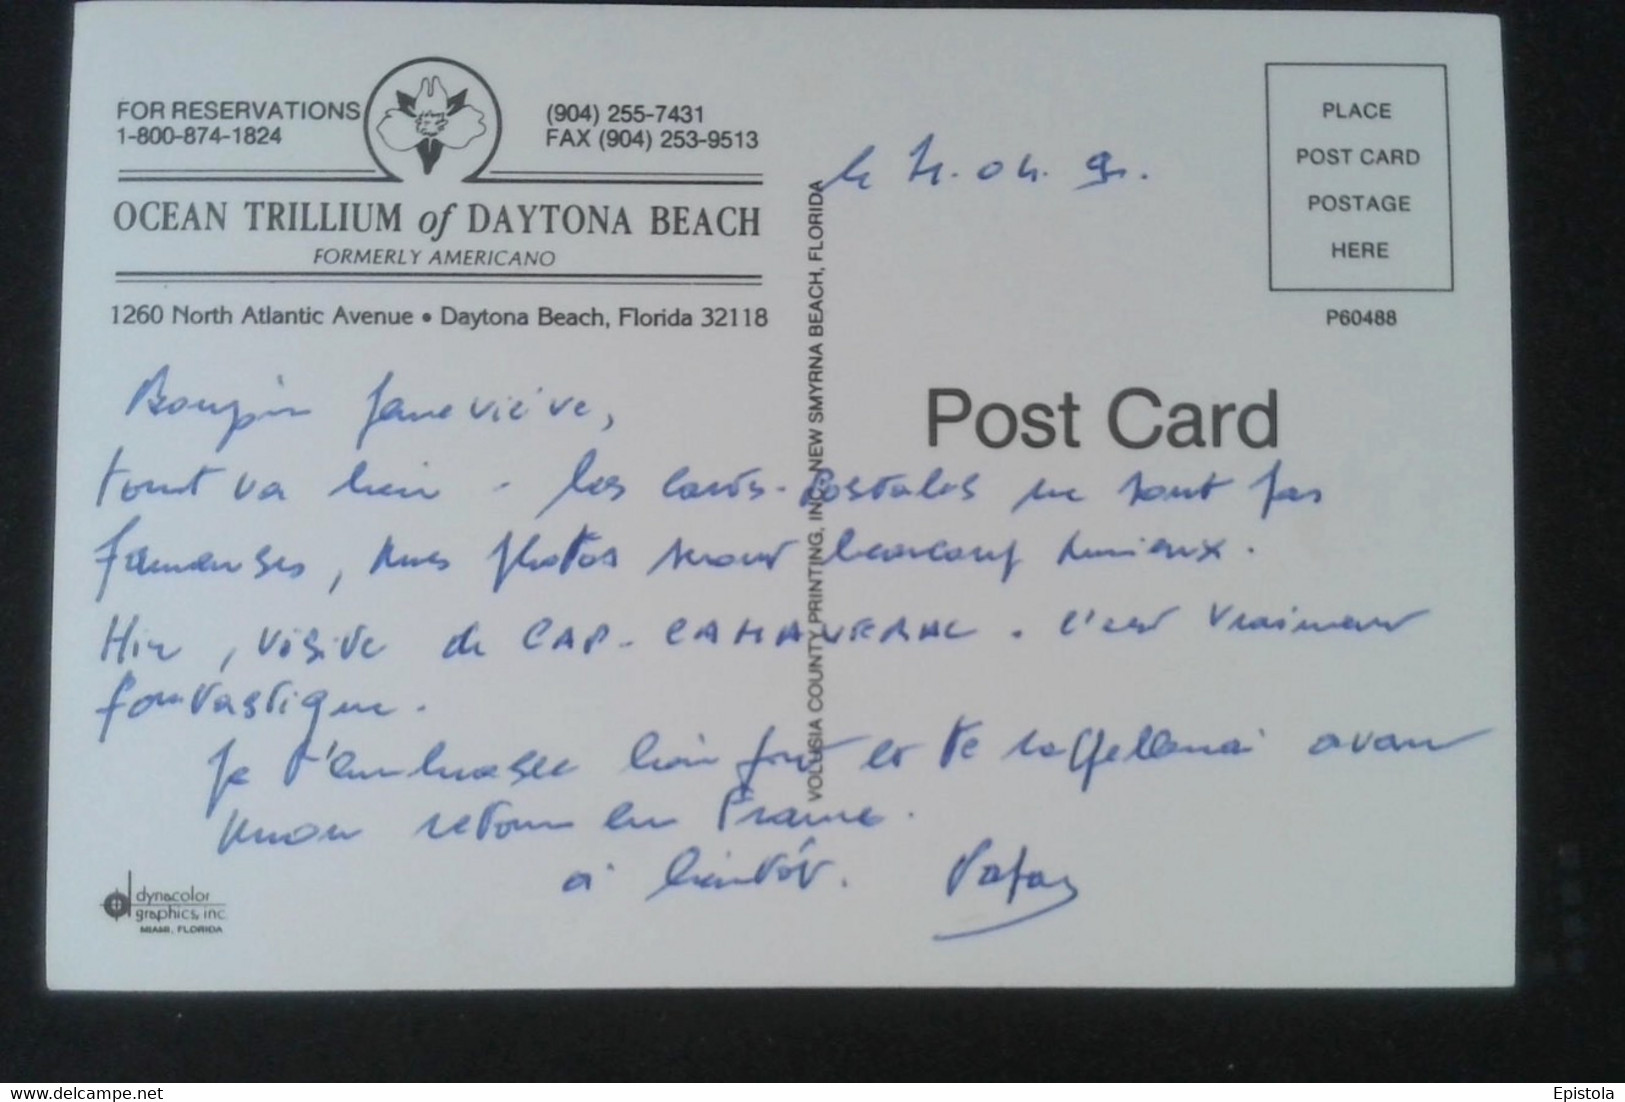 FOR RESERVATIONS
1-800-874-1824
(904) 255-7431
FAX (904) 253-9513
OCEAN TRILLIUM of DAYTONA BEACH
FORMERLY AMERICANO
1260 North Atlantic Avenue • Daytona Beach, Florida 32118
VOLUSIA COUNTY PRINTING, INC. NEW SMYRNA BEACH, FLORIDA
PLACE
POST CARD
POSTAGE
HERE
P60488
Post Card
le .04.
Bonjour Geneviève,
tout va bien - les cartes-postales ne sont pas
fameuses, mes photos seront beaucoup mieux.
Hier, visite de CAP-CANAVERAL. c'est vraiment
fantastique.
Je t'embrasse bien fort et te rappellerai avant
mon retour en France.
à bientôt. Papa
dynacolor
graphics, inc.
MIAMI, FLORIDA
Delcampe.net
Epistola